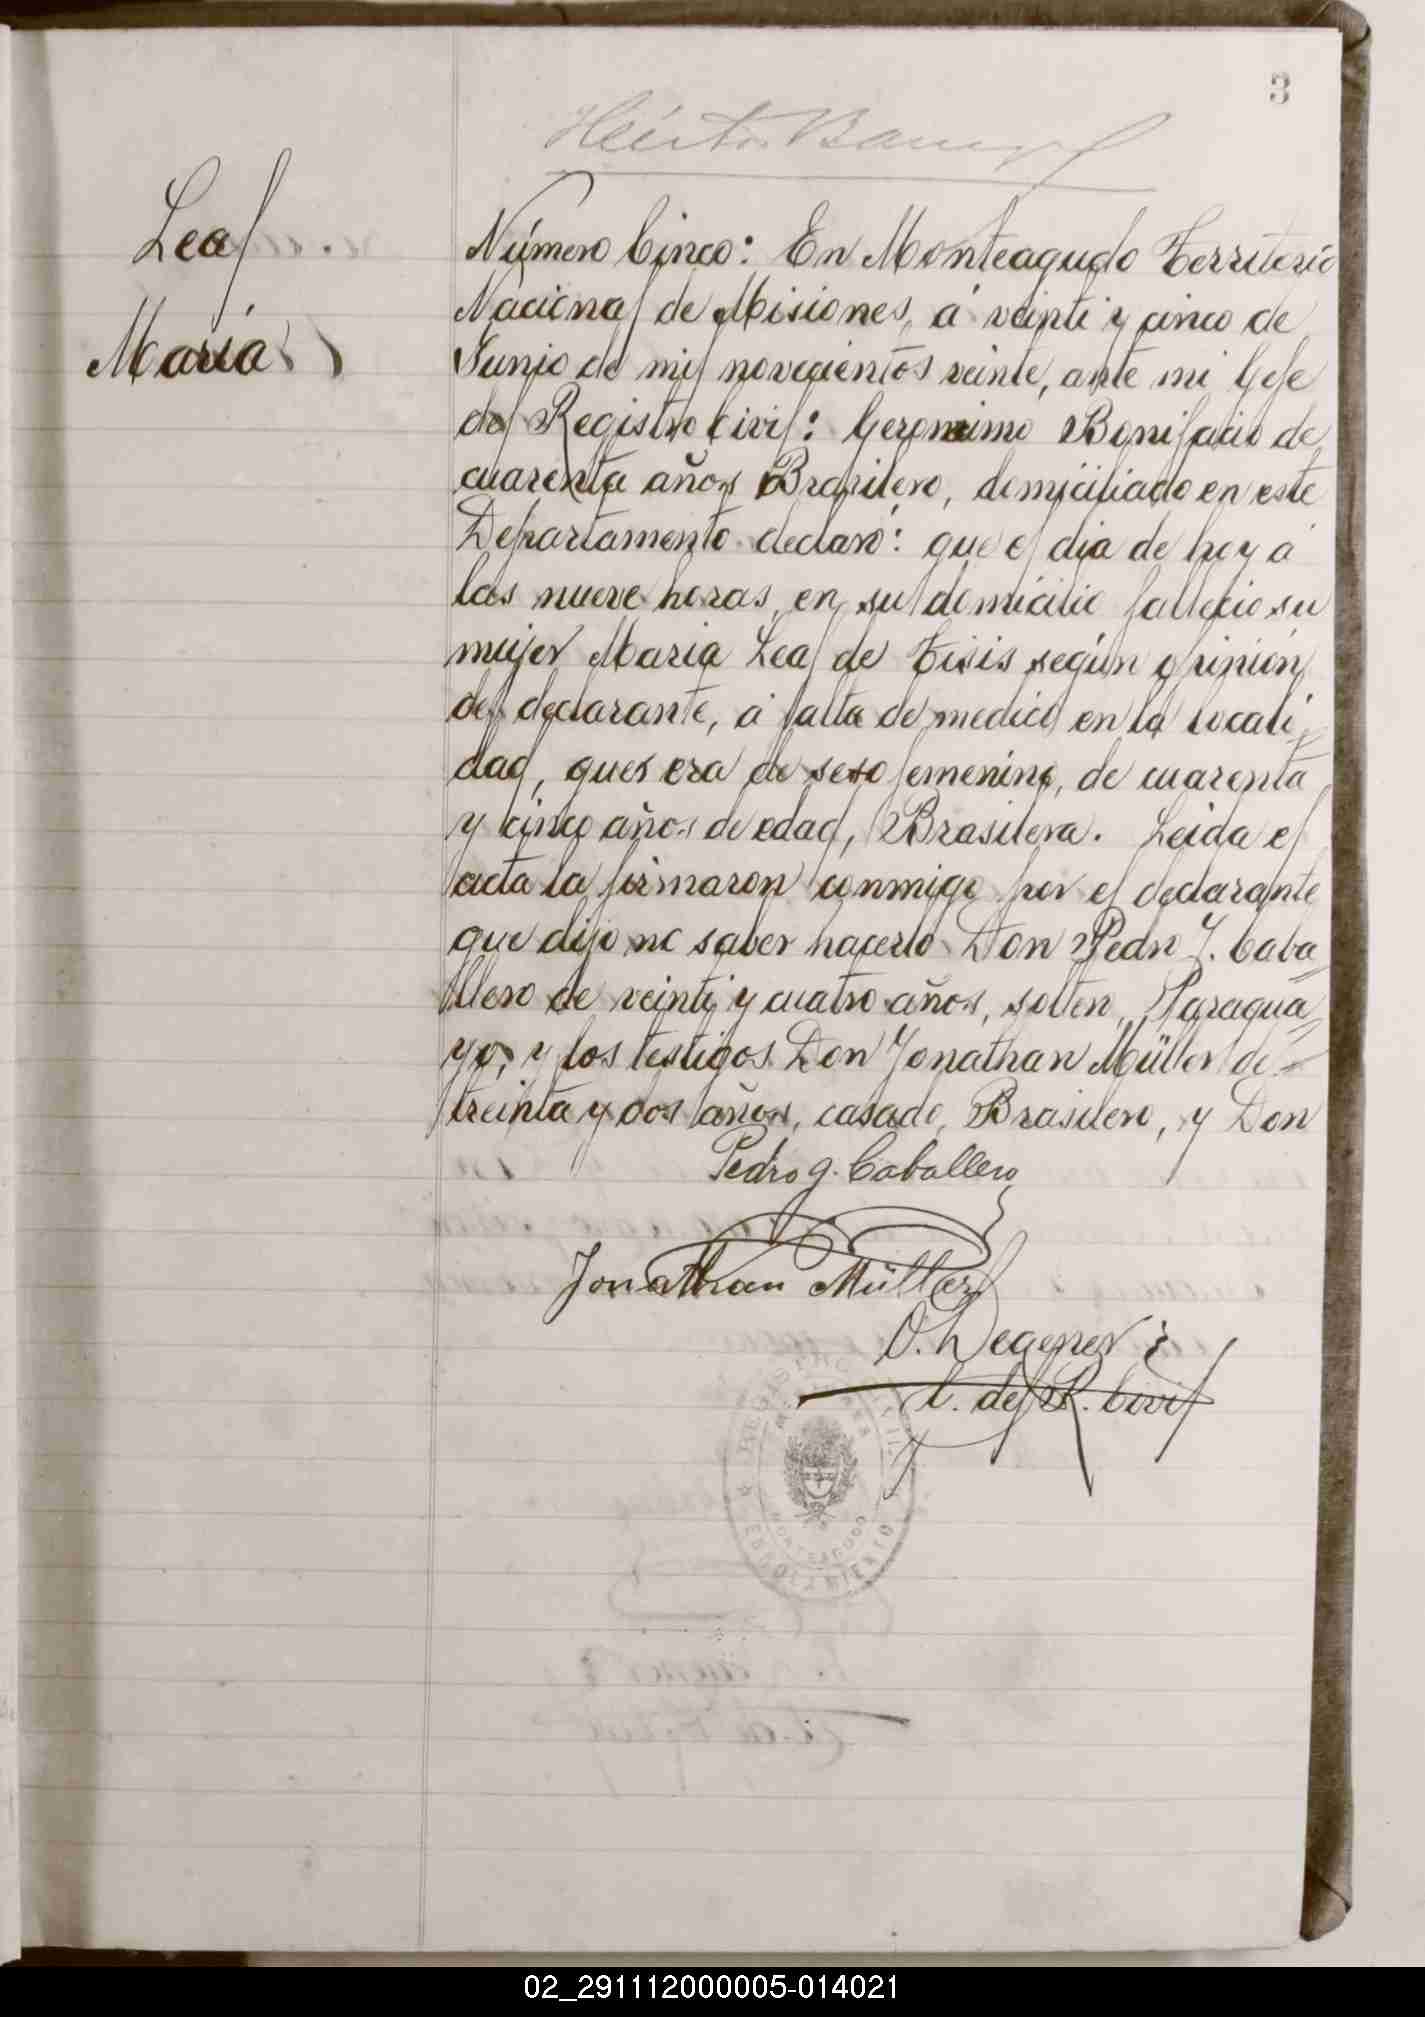 3
Leal
María
Número Cinco: En Monteagudo Territorio
Nacional de Misiones, á veinti y cinco de
Junio de mil novecientos veinte, ante mi Gefe
del Registro Civil: Geronimo Bonifacio de
cuarenta años Brasilero, domiciliado en este
Departamento declaró: que el dia de hoy á
las nueve horas, en su domicilio fallecio su
mujer Maria Leal de Tisis según opinión
del declarante, á falta de medico en la locali
dad, ques era de sexo femenino, de cuarenta
y cinco años de edad, Brasilera. Leida el
acta la firmaron conmigo por el declarante
que dijo no saber hacerlo Don Pedro J. Caba
llero de veinti y cuatro años, solten, Paragua
yo, y los testigos Don Jonathan Müller de
treinta y dos años, casado, Brasilero, y Don
Pedro J. Caballero
Jonathan Müller
O. Degener
E. del R. Civil
REGISTRO CIVIL
MISIONES
MONTEAGUDO
ENROLAMIENTO
02_291112000005-014021